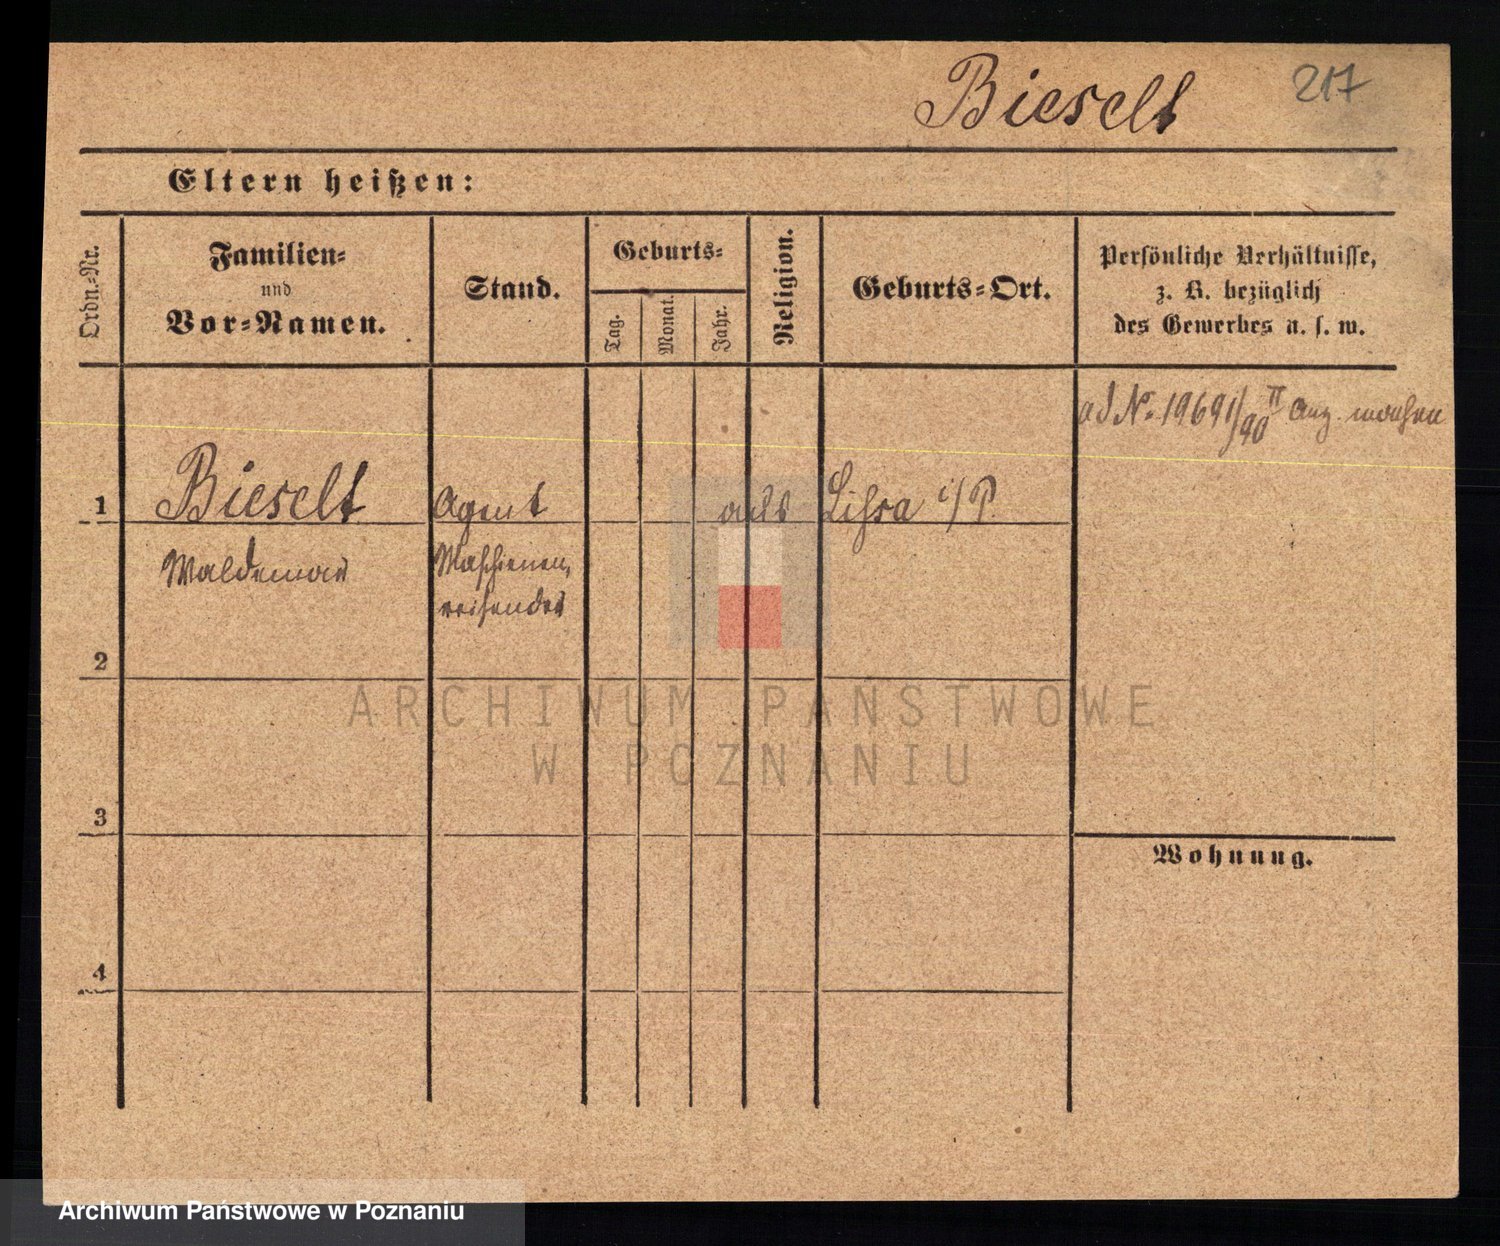 Bieselt 217
Eltern heißen:
Ordn.-Nr.
Familien-
und
Vor-Namen.
Stand.
Geburts-
Tag.
Monat.
Jahr.
Religion.
Geburts-Ort.
Persönliche Verhältnisse,
z. B. bezüglich
des Gewerbes u. s. w.
ad No. 19691/90 II Anz. machen
1 Bieselt Agent aus Lissa i/P.
Waldemar Maschienen,
reisender
2
3
4
Wohnung.
ARCHIWUM PAŃSTWOWE
W POZNANIU
Archiwum Państwowe w Poznaniu